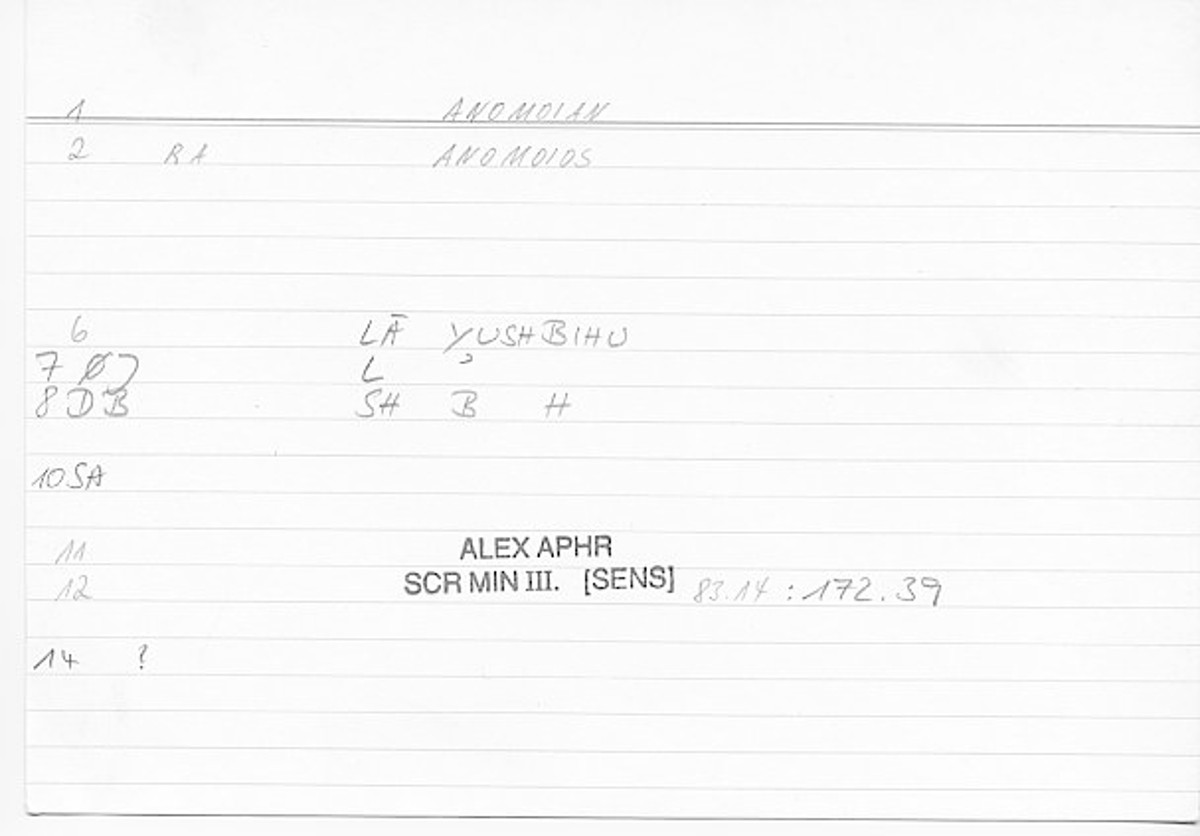 1 ANOMOIAN
2 RA ANOMOIOS
6 LĀ YUSHBIHU
7 Ø) L ʾ
8 DB SH B H
10 SA
11 ALEX APHR
12 SCR MIN III. [SENS] 83.14 : 172.39
14 ?